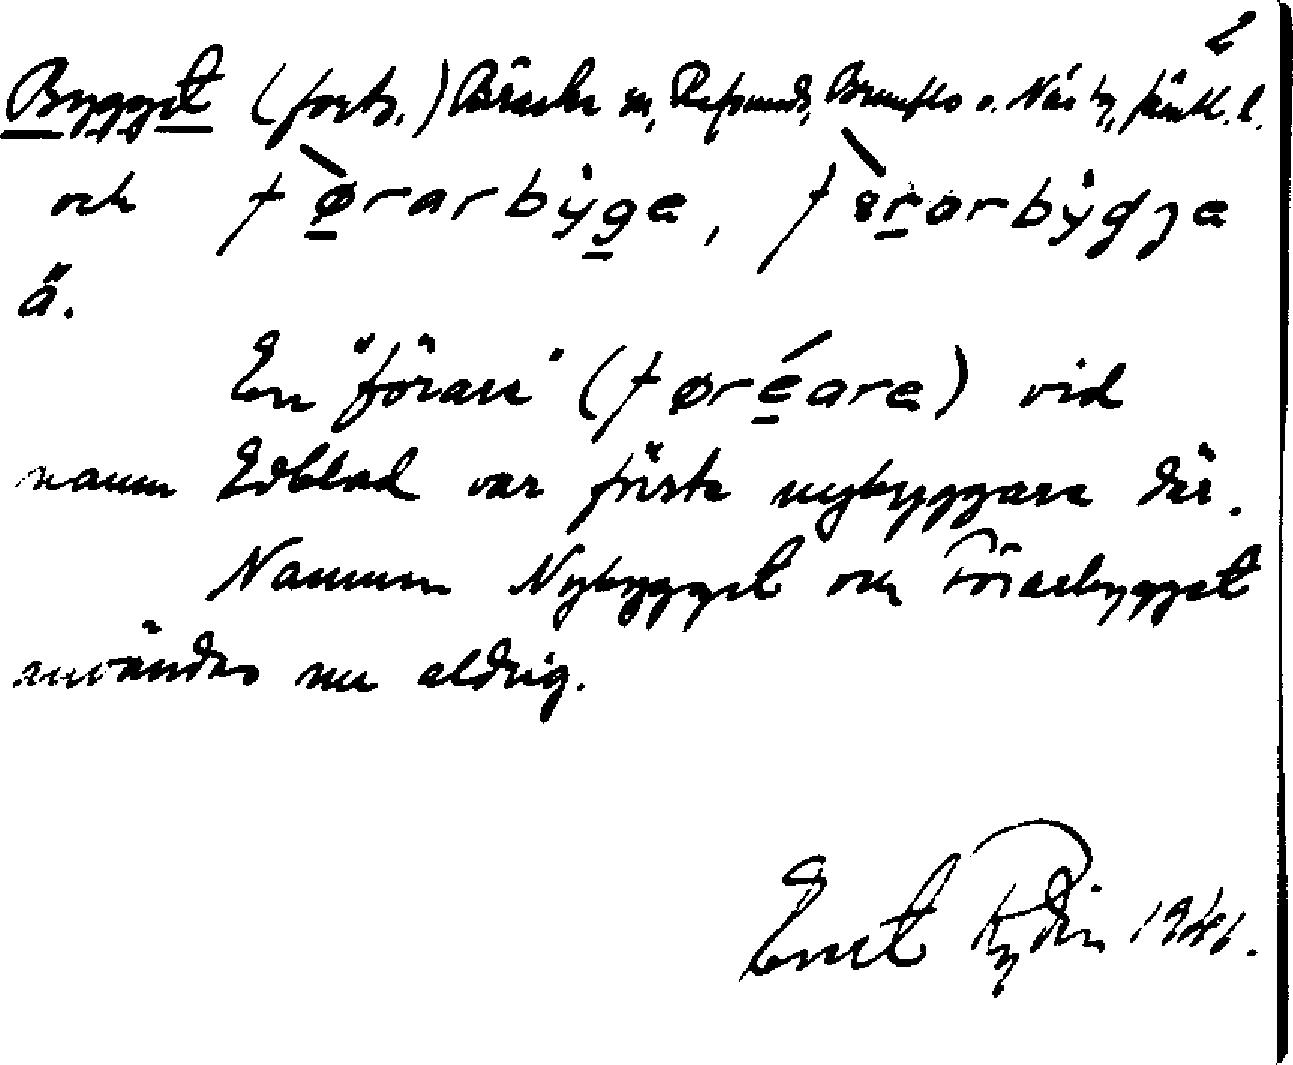 2
Bygget (forts.) Bräcke sn, Refsunds, Brunflo o. Näs tg, Jämtl. l.
och fø̀rarbẏge, fɞ̀rarbẏgʒe
ä.
En "förare" (føréare) vid
namn Edblad var förste nybyggare där.
Namnen Nybygget och Förarbygget
användas nu aldrig.
Ernst Rydin 1941.